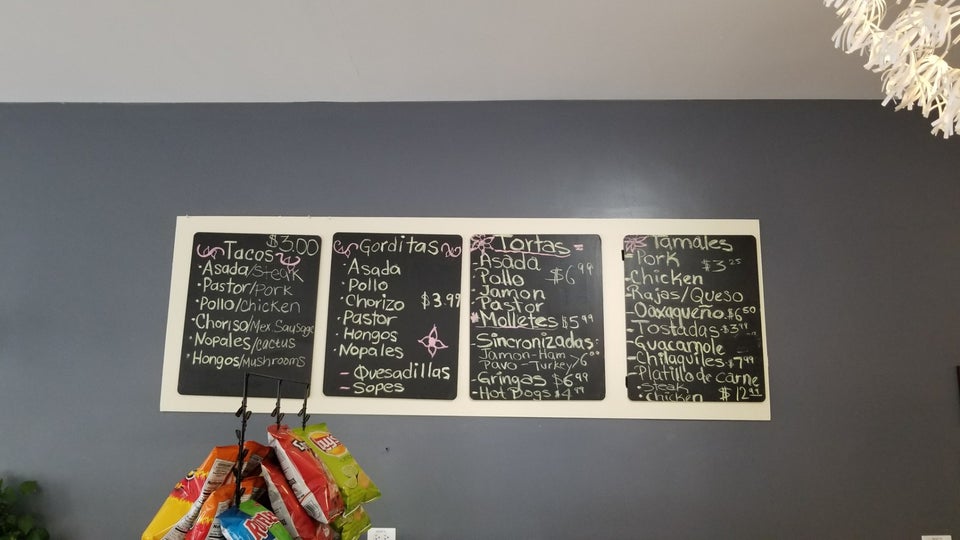 $3.00
Tacos
·Asada/Steak
·Pastor/Pork
·Pollo/Chicken
·Choriso/Mex Sausage
·Nopales/cactus
·Hongos/Mushrooms
Gorditas
·Asada
·Pollo
·Chorizo $3.99
·Pastor
·Hongos
·Nopales
- Quesadillas
- Sopes
Tortas
-Asada
-Pollo $6.99
-Jamon
-Pastor
*Molletes $5.99
-Sincronizadas:
Jamon-Ham
Pavo-Turkey>6.00
-Gringas $6.99
-Hot Dogs $4.99
Tamales
-Pork $3.25
-Chicken
-Rajas/Queso
-Oaxaqueño $6.50
-Tostadas $3.99
-Guacamole
-Chilaquiles $7.99
-Platillo de carne
·Steak
·Chicken $12.99